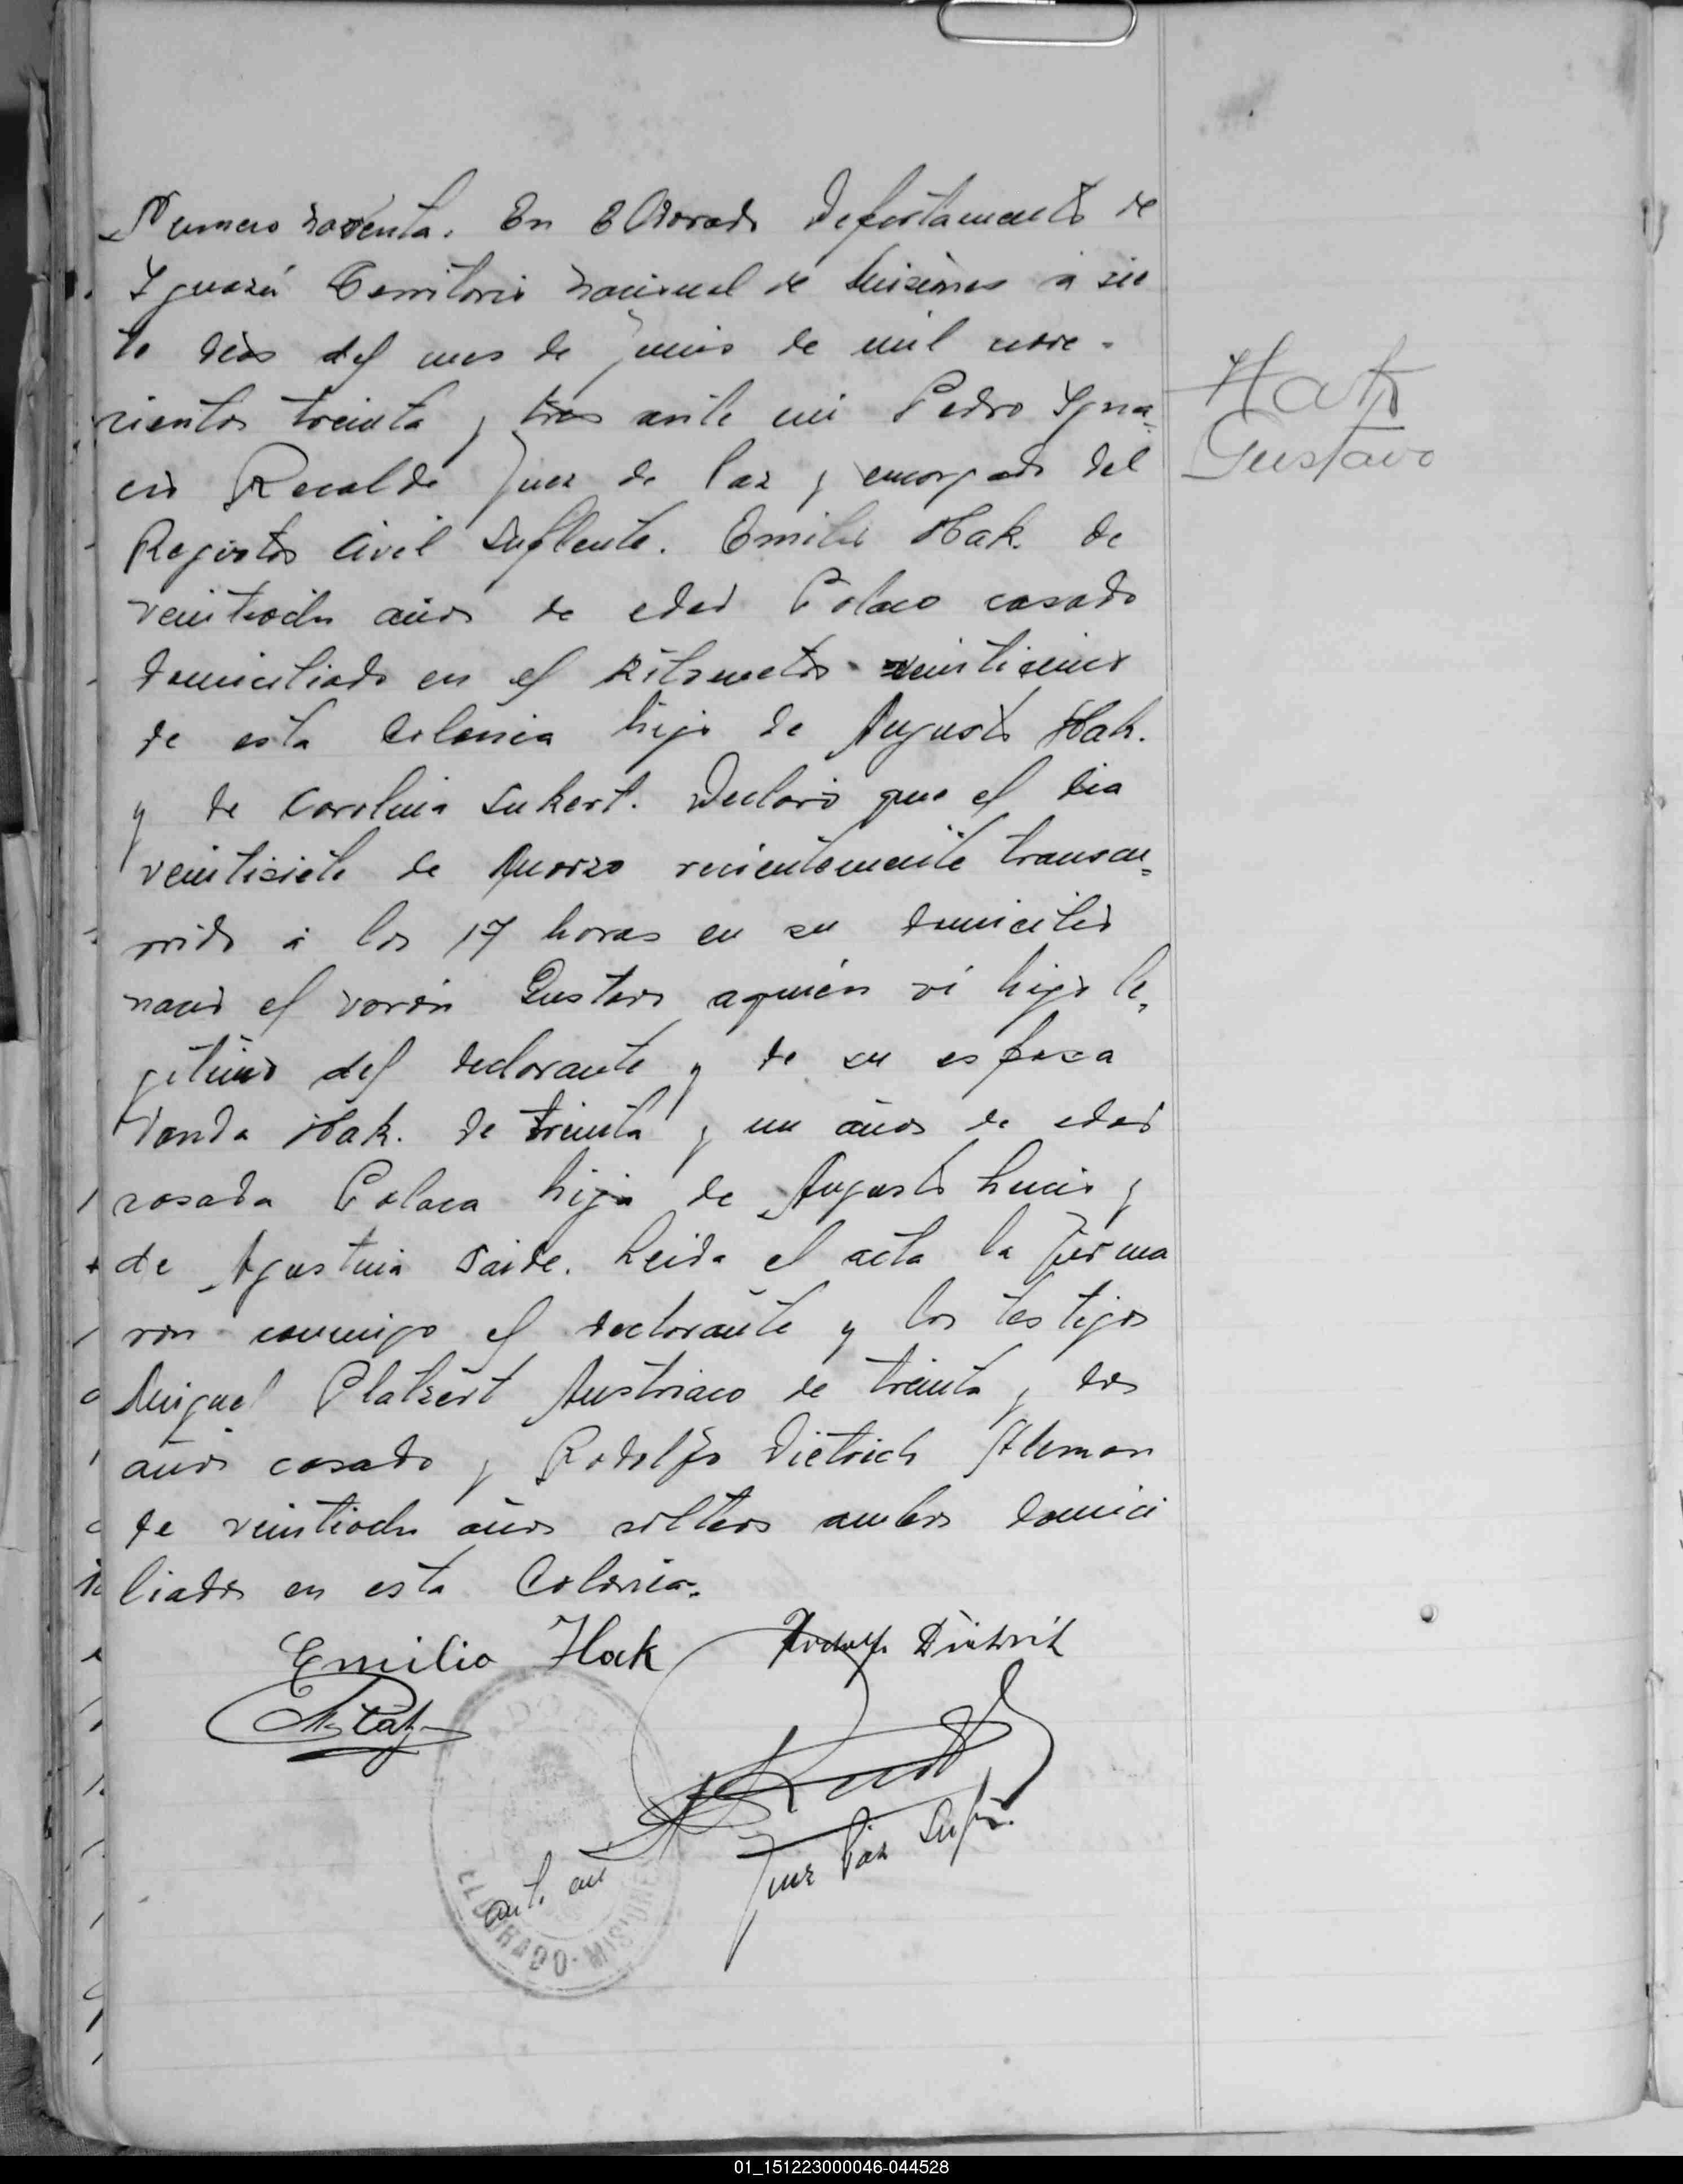 Numero noventa. En Eldorado Departamento de
Yguazú Territorio Nacional de Misiones á sie
te dias del mes de Junio de mil nove-
cientos treinta y tres ante mi Pedro Ygna=
cio Recalde Juez de Paz y encargado del
Registro Civil Suplente. Emilio Hak. de
veintiocho años de edad Polaco casado
domiciliado en el kilometro veinticinco
de esta Colonia hijo de Augusto Hak.
y de Carolina Sukert. Declaró que el dia
veintisiete de Marzo recientemente transcu=
rrido á las 17 horas en su domicilio
nació el varón Gustavo aquién ví hijo le=
gitimo del declarante y de su esposa
Vanda Hak. de treinta y un años de edad
casada Polaca hija de Augusto Lucis y
de Agustina Saide. Leida el acta la firma
ron conmigo el declarante y los testigos
Miguel Platzert Austriaco de treinta y dos
años casado y Rodolfo Dietrich Aleman
de veintiocho años soltero ambos domici
liados en esta Colonia.
Hak
Gustavo
Emilio Hak Rodolfo Dietrich
ante mi
Juez Paz Supte.
ELDORADO-MISIONES
01_151223000046-044528